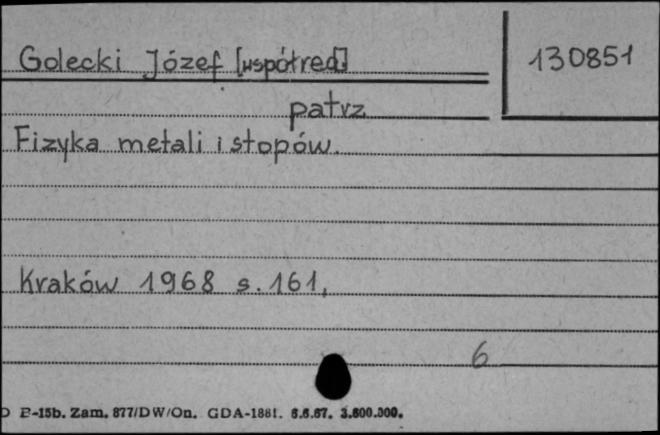 Golecki Józef [współred.]
130851
patrz
Fizyka metali i stopów.
Kraków 1968 s. 161,
6
P-15b. Zam. 877/DW/On. GDA-1881. 6.6.67. 3.600.000.